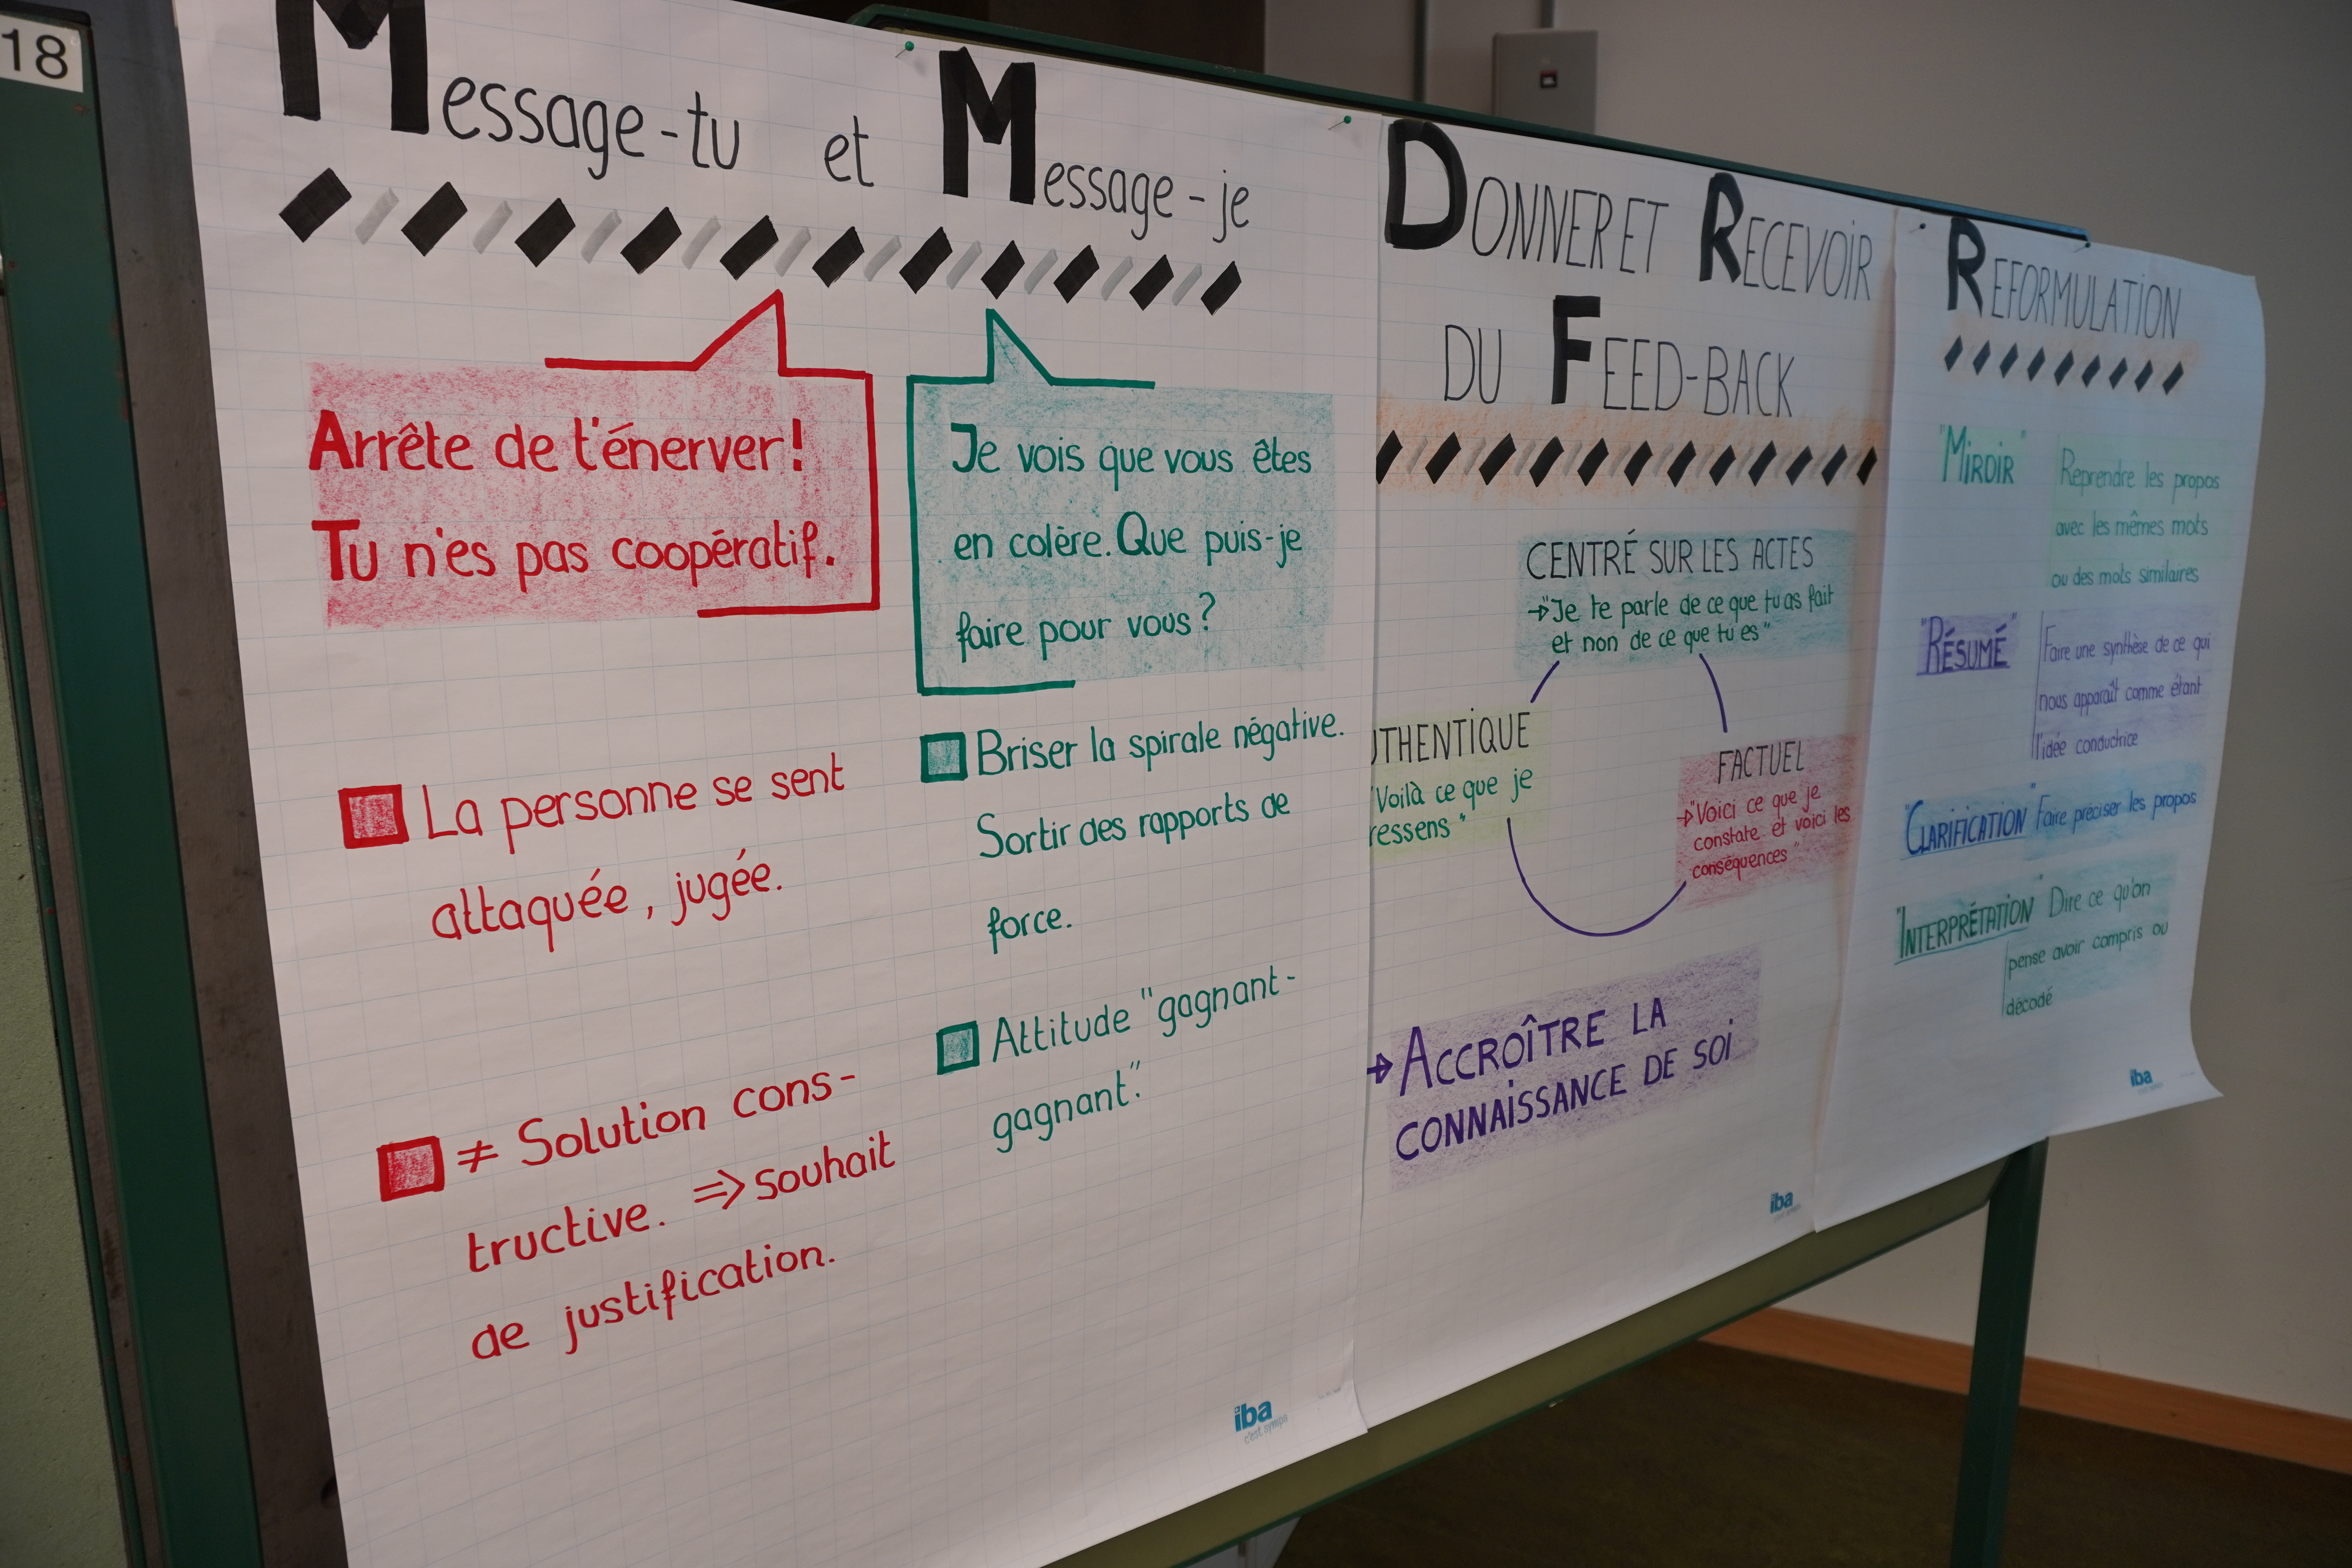 18
Message-tu et Message-je
Arrête de t'énerver!
Tu n'es pas coopératif.
La personne se sent
attaquée, jugée.
≠ Solution cons-
tructive. => souhait
de justification.
Je vois que vous êtes
en colère. Que puis-je
faire pour vous?
Briser la spirale négative.
Sortir des rapports de
force.
Attitude "gagnant-
gagnant".
iba
c'est sympa
DONNER ET RECEVOIR
DU FEED-BACK
CENTRÉ SUR LES ACTES
→"Je te parle de ce que tu as fait
et non de ce que tu es"
UTHENTIQUE
"Voilà ce que je
ressens"
FACTUEL
→"Voici ce que je
constate et voici les
conséquences"
→ ACCROÎTRE LA
CONNAISSANCE DE SOI
iba
REFORMULATION
"MIROIR" Reprendre les propos
avec les mêmes mots
ou des mots similaires
"RÉSUMÉ" Faire une synthèse de ce qui
nous apparaît comme étant
l'idée conductrice
"CLARIFICATION" Faire préciser les propos
"INTERPRÉTATION" Dire ce qu'on
pense avoir compris ou
décodé
iba